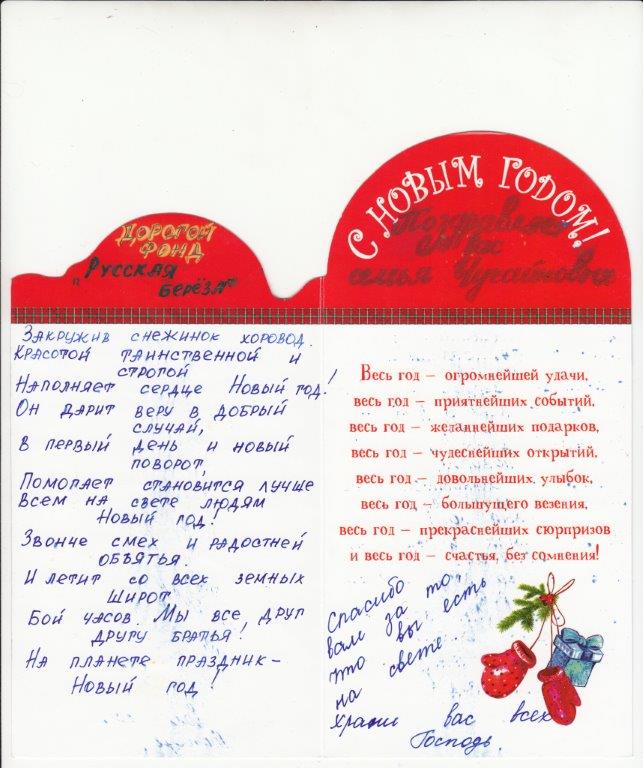 ДОРОГОЙ
ФОНД
"РУССКАЯ
БЕРЁЗА"
ЗАКРУЖИВ СНЕЖИНОК ХОРОВОД.
КРАСОТОЙ ТАИНСТВЕННОЙ И
СТРОГОЙ
НАПОЛНЯЕТ СЕРДЦЕ НОВЫЙ ГОД!
ОН ДАРИТ ВЕРУ В ДОБРЫЙ
СЛУЧАЙ,
В ПЕРВЫЙ ДЕНЬ И НОВЫЙ
ПОВОРОТ,
ПОМОГАЕТ СТАНОВИТСЯ ЛУЧШЕ
ВСЕМ НА СВЕТЕ ЛЮДЯМ
НОВЫЙ ГОД!
ЗВОНЧЕ СМЕХ И РАДОСТНЕЙ
ОБЪЯТЬЯ.
И ЛЕТИТ СО ВСЕХ ЗЕМНЫХ
ШИРОТ
БОЙ ЧАСОВ. МЫ ВСЕ ДРУГ
ДРУГУ БРАТЬЯ!
НА ПЛАНЕТЕ ПРАЗДНИК –
НОВЫЙ ГОД!
С НОВЫМ ГОДОМ!
Поздравляет
вас
семья
Весь год – огромнейшей удачи,
весь год – приятнейших событий,
весь год – желаннейших подарков,
весь год – чудеснейших открытий,
весь год – довольнейших улыбок,
весь год – большущего везения,
весь год – прекраснейших сюрпризов
и весь год – счастья, без сомнения!
Спасибо
вам за то,
что вы есть
на свете.
Храни вас всех
Господь.